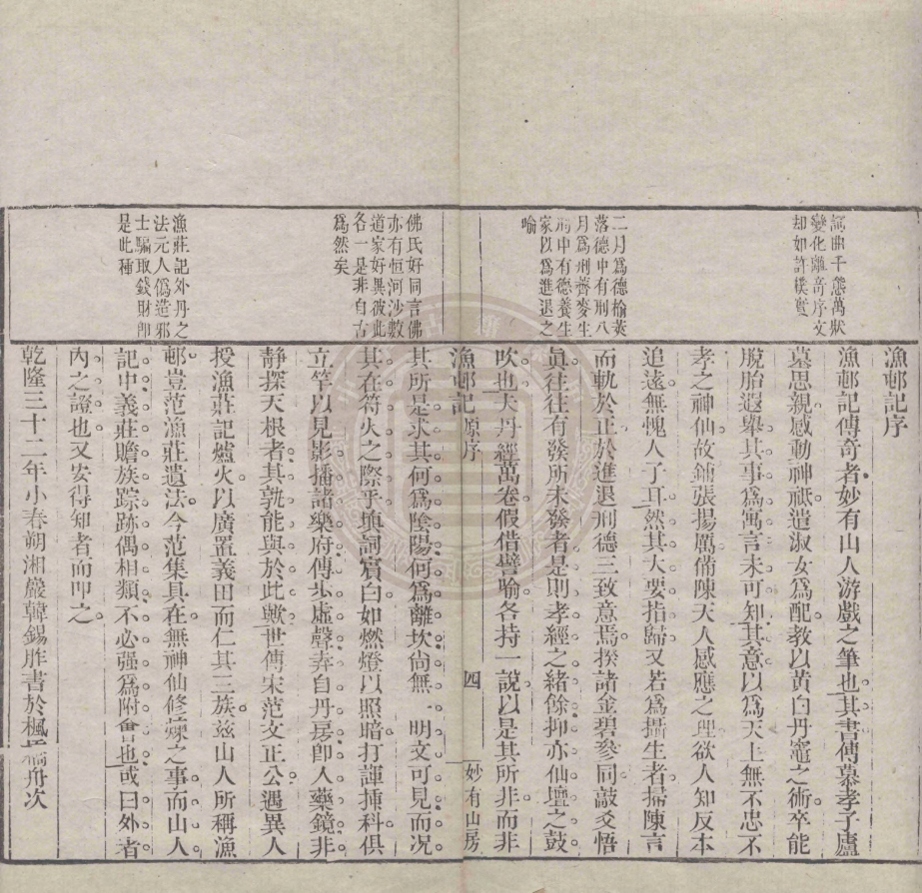 漁邨記序
漁邨記傳奇者妙有山人游戲之筆也其書傳慕孝子廬
墓思親感動神祇遣淑女為配教以黃白丹竈之術卒能
脫胎遐舉其事為寓言未可知其意以為天上無不忠不
孝之神仙故鋪張揚厲備陳天人感應之理欲人知反本
追遠無愧人子耳然其大要指歸又若為攝生者掃陳言
而軌於正於進退刑德三致意焉揆諸金碧參同敲爻悟
眞往往有發所未發者是則孝經之緒餘抑亦仙壇之鼓
吹也夫丹經萬卷假借譬喻各持一說以是其所非而非
詞曲千態萬狀
變化離奇序文
却如許樸實
二月為德榆莢
落德中有刑八
月為刑薺麥生
刑中有德養生
家以為進退之
喻
漁邨記 原序
四
妙有山房
其所是求其何為陰陽何為離坎尙無一明文可見而况
其在符火之際乎塡詞賓白如燃燈以照暗打諢揷科俱
立竿以見影播諸樂府傳步虛聲奏自丹房卽人藥鏡非
靜探天根者其孰能與於此歟世傳宋范文正公遇異人
授漁莊記爐火以廣置義田而仁其三族茲山人所稱漁
邨豈范漁莊遺法今范集具在無神仙修煉之事而山人
記中義莊贍族踪跡偶相類不必强為附會也或曰外者
內之證也又安得知者而叩之
乾隆三十二年小春朔湘巖韓錫胙書於楓橋舟次
佛氏好同言佛
亦有恒河沙數
道家好異彼此
各一是非自古
為然矣
漁莊記外丹之
法元人僞造邪
士騙取錢財卽
是此種